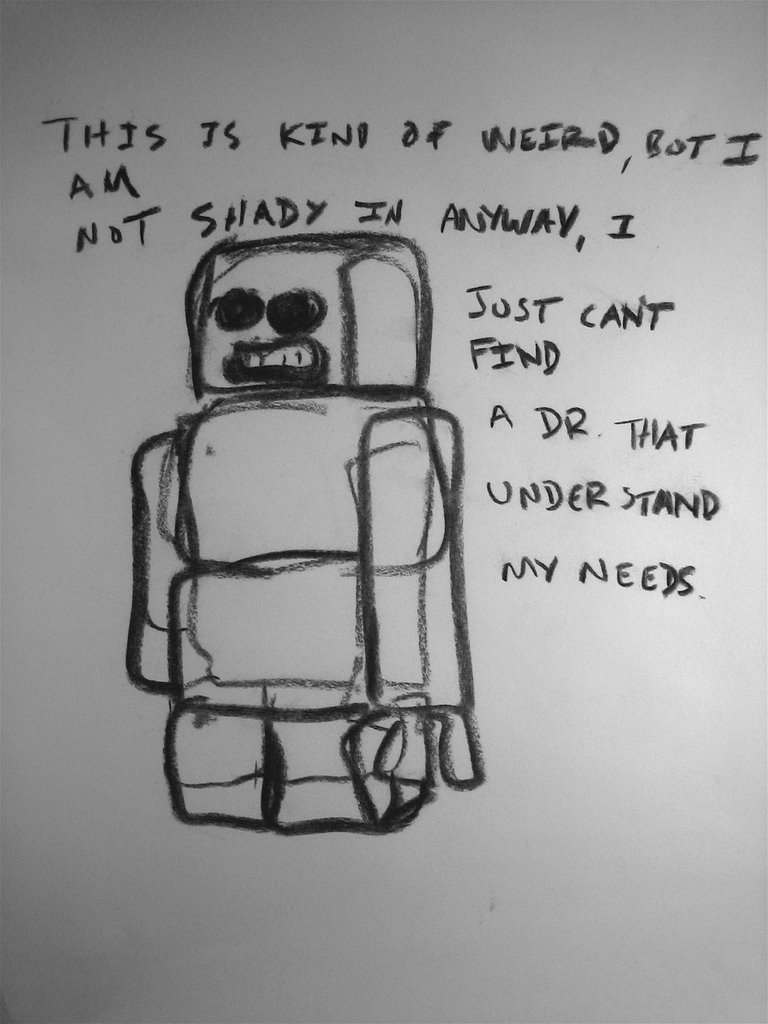 THIS IS KIND OF WEIRD, BUT I
AM
NOT SHADY IN ANYWAY, I
JUST CANT
FIND
A DR. THAT
UNDERSTAND
MY NEEDS.